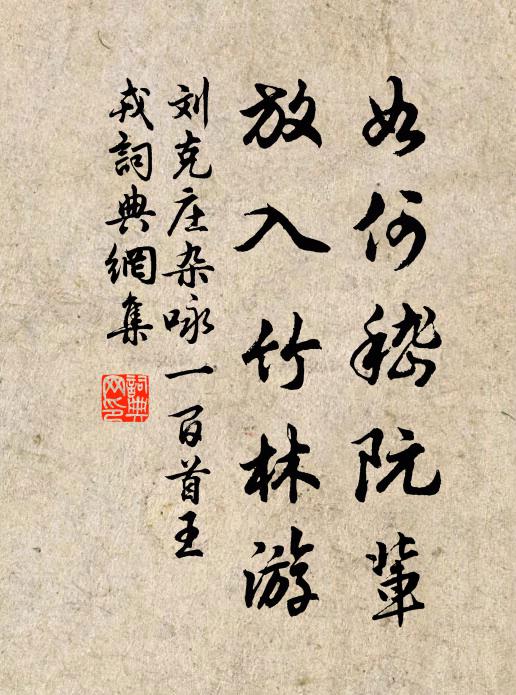 如何嵇阮輩
放入竹林游
刘克庄杂咏一百首王
戎詞典網集
詞典网印